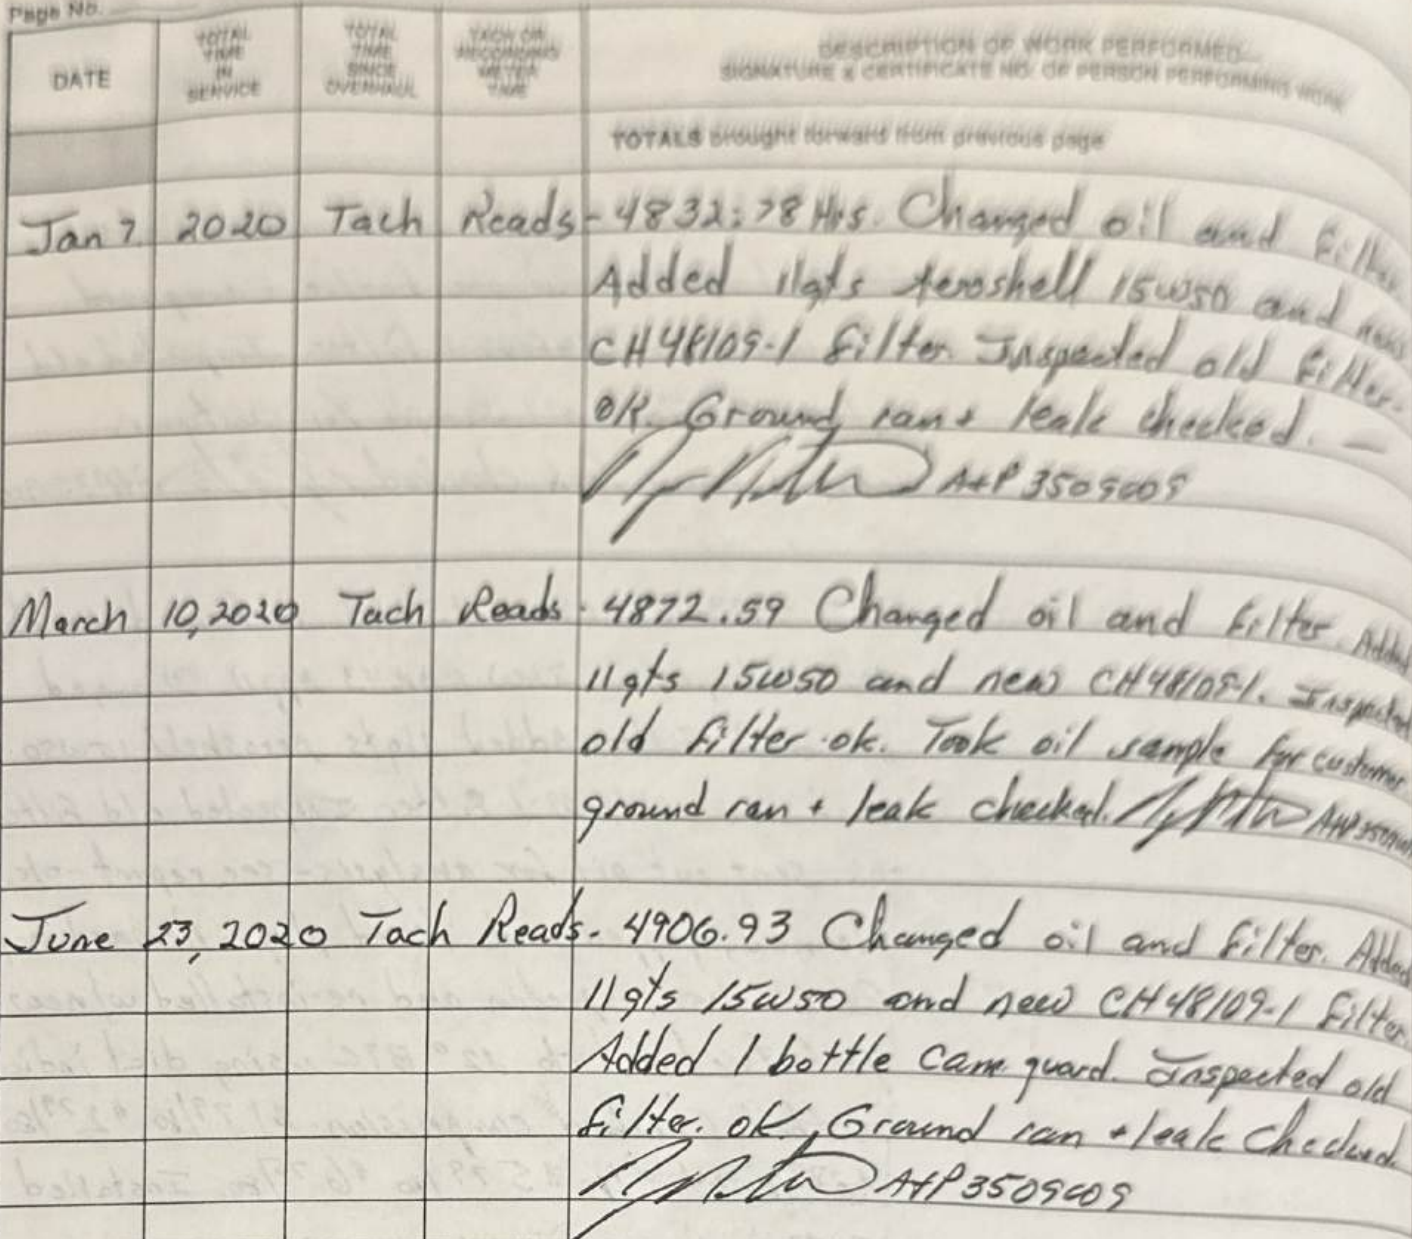 Page No.
DATE
TOTAL TIME IN SERVICE
TOTAL TIME SINCE OVERHAUL
TACH OR RECORDING METER TIME
DESCRIPTION OF WORK PERFORMED
SIGNATURE & CERTIFICATE NO. OF PERSON PERFORMING WORK
TOTALS brought forward from previous page
Jan 7 2020 Tach Reads - 4832.78 Hrs. Changed oil and filter
Added 11qts Aeroshell 15W50 and new
CH48109-1 filter Inspected old filter.
OK. Ground ran + leak checked. —
A+P 3509009
March 10, 2020 Tach Reads - 4872.59 Changed oil and filter. Added
11qts 15W50 and new CH48109-1. Inspected
old filter ok. Took oil sample for customer
ground ran + leak checked. A+P
June 23, 2020 Tach Reads - 4906.93 Changed oil and filter. Added
11qts 15W50 and new CH48109-1 filter
Added 1 bottle Cam guard. Inspected old
filter. ok. Ground ran + leak checked.
A+P 3509009